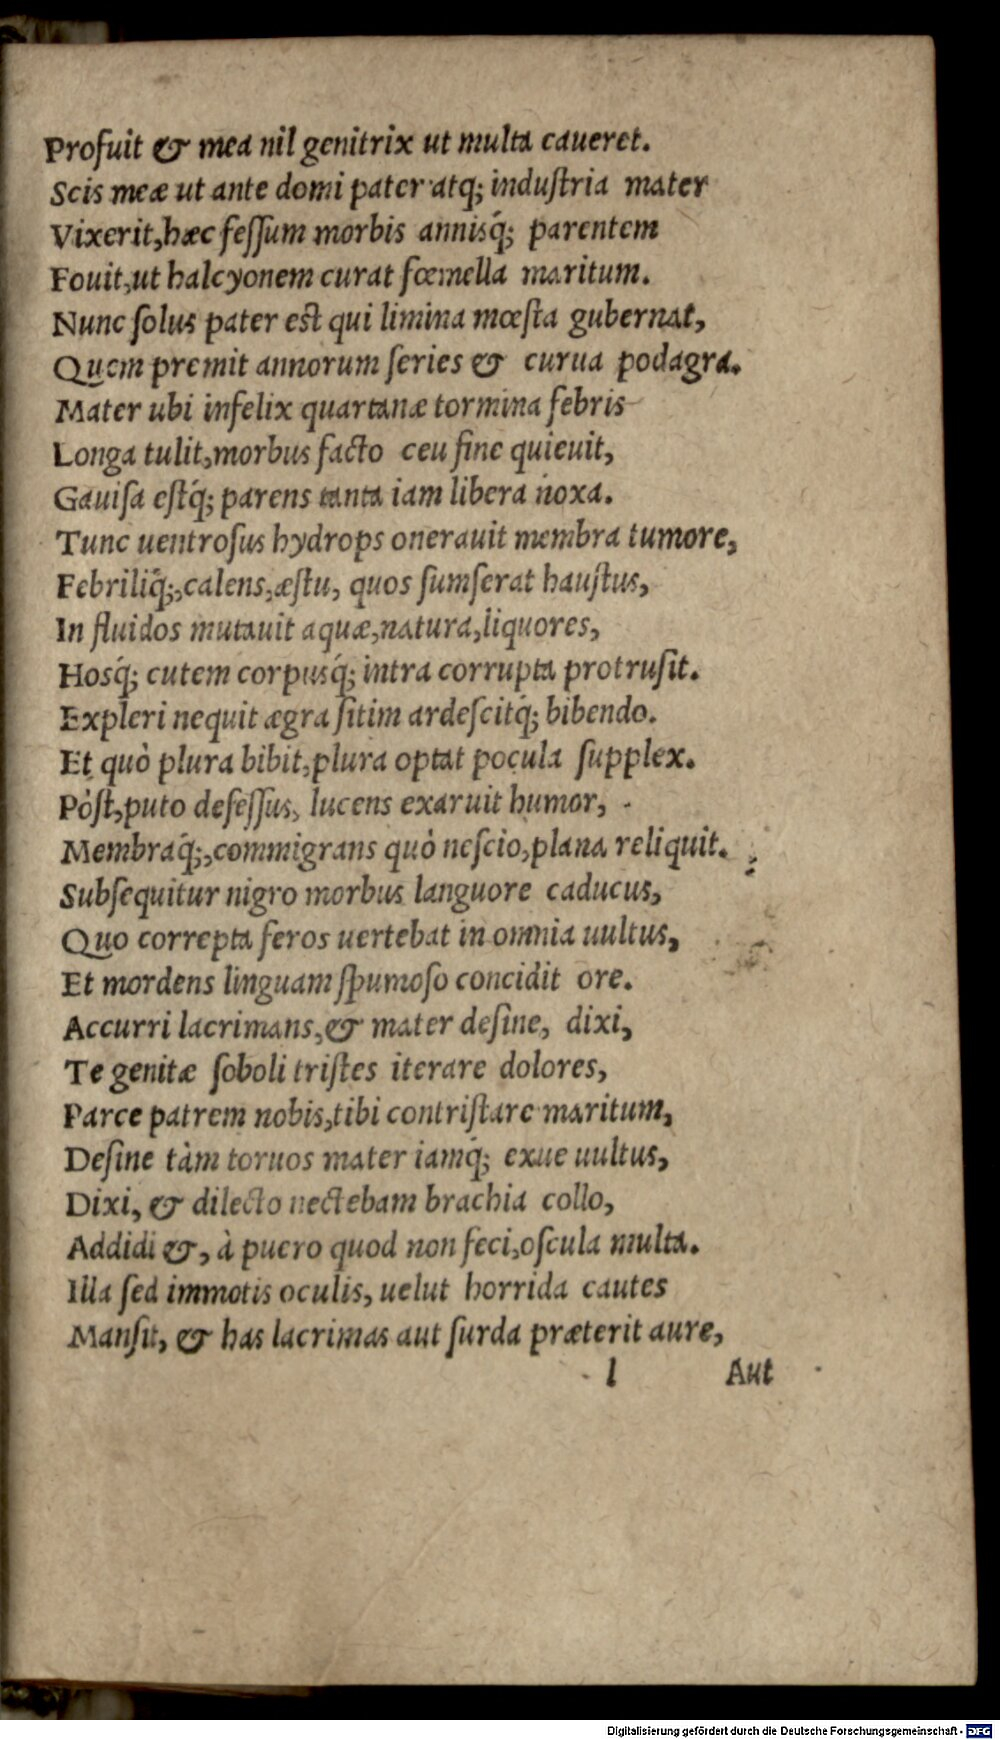 Profuit & mea nil genitrix ut multa caueret.
Scis meæ ut ante domi pater atq; induſtria mater
Vixerit, hæc feſſum morbis annisq́; parentem
Fouit, ut halcyonem curat fœmella maritum.
Nunc ſolus pater eſt qui limina mœſta gubernat,
Quem premit annorum ſeries & curua podagra.
Mater ubi infelix quartanæ tormina febris
Longa tulit, morbus facto ceu fine quieuit,
Gauiſa eſtq́; parens tanta iam libera noxa.
Tunc uentroſus hydrops onerauit membra tumore,
Febriliq́;, calens, æſtu, quos ſumſerat hauſtus,
In fluidos mutauit aquæ, natura, liquores,
Hosq́; cutem corpusq́; intra corrupta protruſit.
Expleri nequit ægra ſitim ardeſcitq́; bibendo.
Et quò plura bibit, plura optat pocula ſupplex.
Pòſt, puto defeſſus, lucens exaruit humor,
Membraq́;, commigrans quò neſcio, plana reliquit.
Subſequitur nigro morbus languore caducus,
Quo correpta feros uertebat in omnia uultus,
Et mordens linguam ſpumoſo concidit ore.
Accurri lacrimans, & mater deſine, dixi,
Te genitæ ſoboli triſtes iterare dolores,
Parce patrem nobis, tibi contriſtare maritum,
Deſine tàm toruos mater iamq́; exue uultus,
Dixi, & dilecto nectebam brachia collo,
Addidi &, à puero quod non feci, oſcula multa.
Illa ſed immotis oculis, uelut horrida cautes
Manſit, & has lacrimas aut ſurda præterit aure,
l Aut
Digitalisierung gefördert durch die Deutsche Forschungsgemeinschaft - DFG